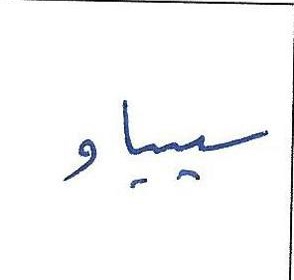 سيباو